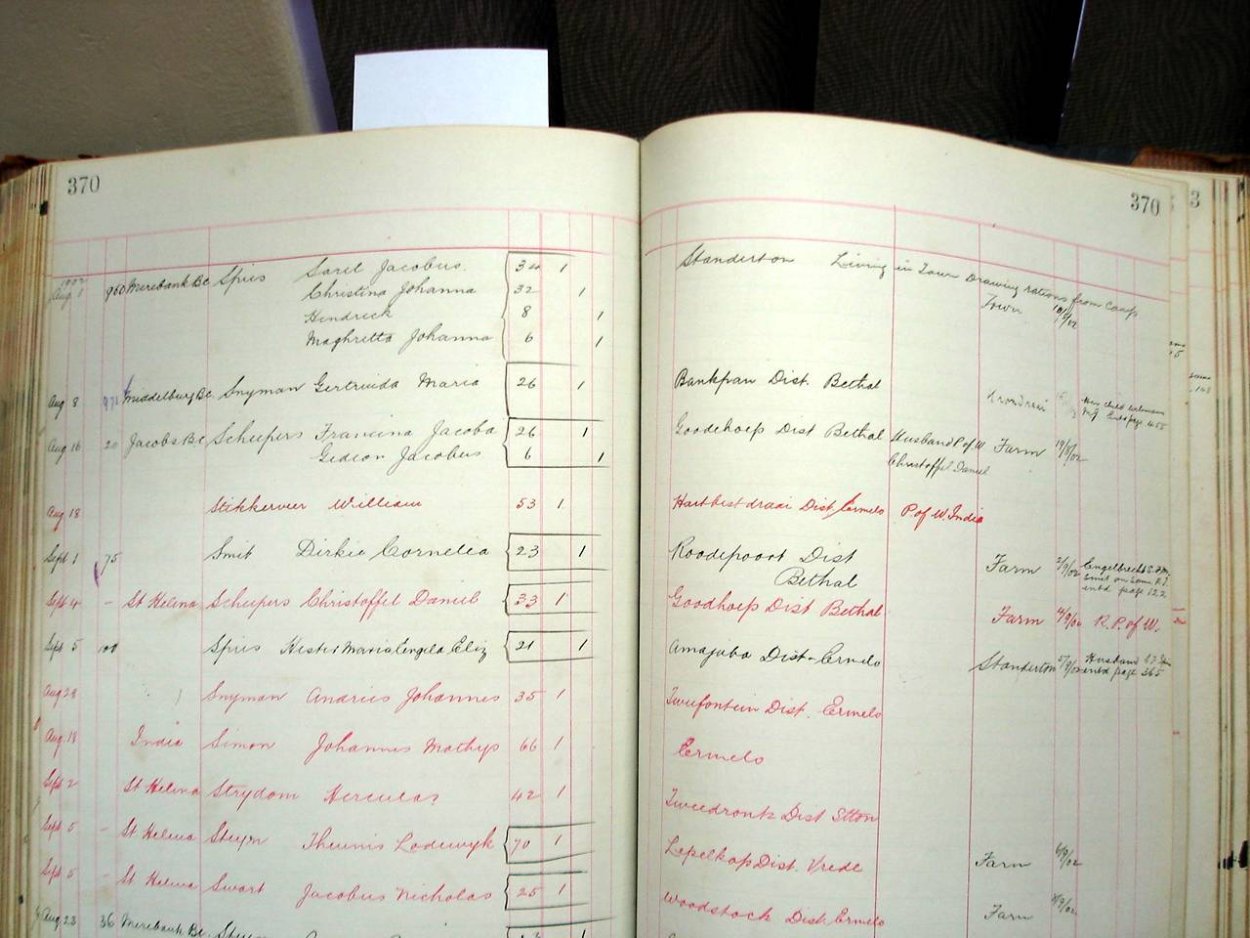 370
370
3
1902
Aug 1 960 Merebank Bc Spies Sarel Jacobus 34 1 Standerton Living in Town Drawing rations from Camp
Christina Johanna 32 1 Town
Hendrick 8 1
Maghretta Johanna 6 1
Aug 8 Middelburg Bc Snyman Gertruida Maria 26 1 Bankpan Dist. Bethal
Aug 16 20 Jacobs Bc Scheepers Francina Jacoba 26 1 Goodehoep Dist Bethal Husband P of W Farm 19/8/02
Gideon Jacobus 6 1 Christoffel Daniel
Aug 18 William 53 1 Hartbestdraai Dist Ermelo P of W India
Sept 1 75 Smit Dirkie Cornelia 23 1 Roodepoort Dist Farm 2/9/02
Bethal page 122
Sept 4 - St Helena Scheepers Christoffel Daniel 33 1 Goodhoep Dist Bethal Farm 4/9/02 R. P. of W.
Sept 5 100 Spies Hester Maria Engela Eliz 21 1 Amajuba Dist- Ermelo Standerton 5/9/02 Husband
page 365
Aug 29 Snyman Andries Johannes 35 1 Twefontein Dist. Ermelo
Aug 18 India Simon Johannes Mathys 66 1 Ermelo
Sept 2 St Helena Strydom Hercules 42 1 Tweedronk Dist Stton
Sept 5 - St Helena Steyn Theunis Lodewyk 70 1 Lepelkop Dist. Vrede Farm 6/9/02
Sept 5 - St Helena Swart Jacobus Nicholas 25 1 Woodstock Dist Ermelo Farm 8/9/02
Aug 23 36 Merebank Bc